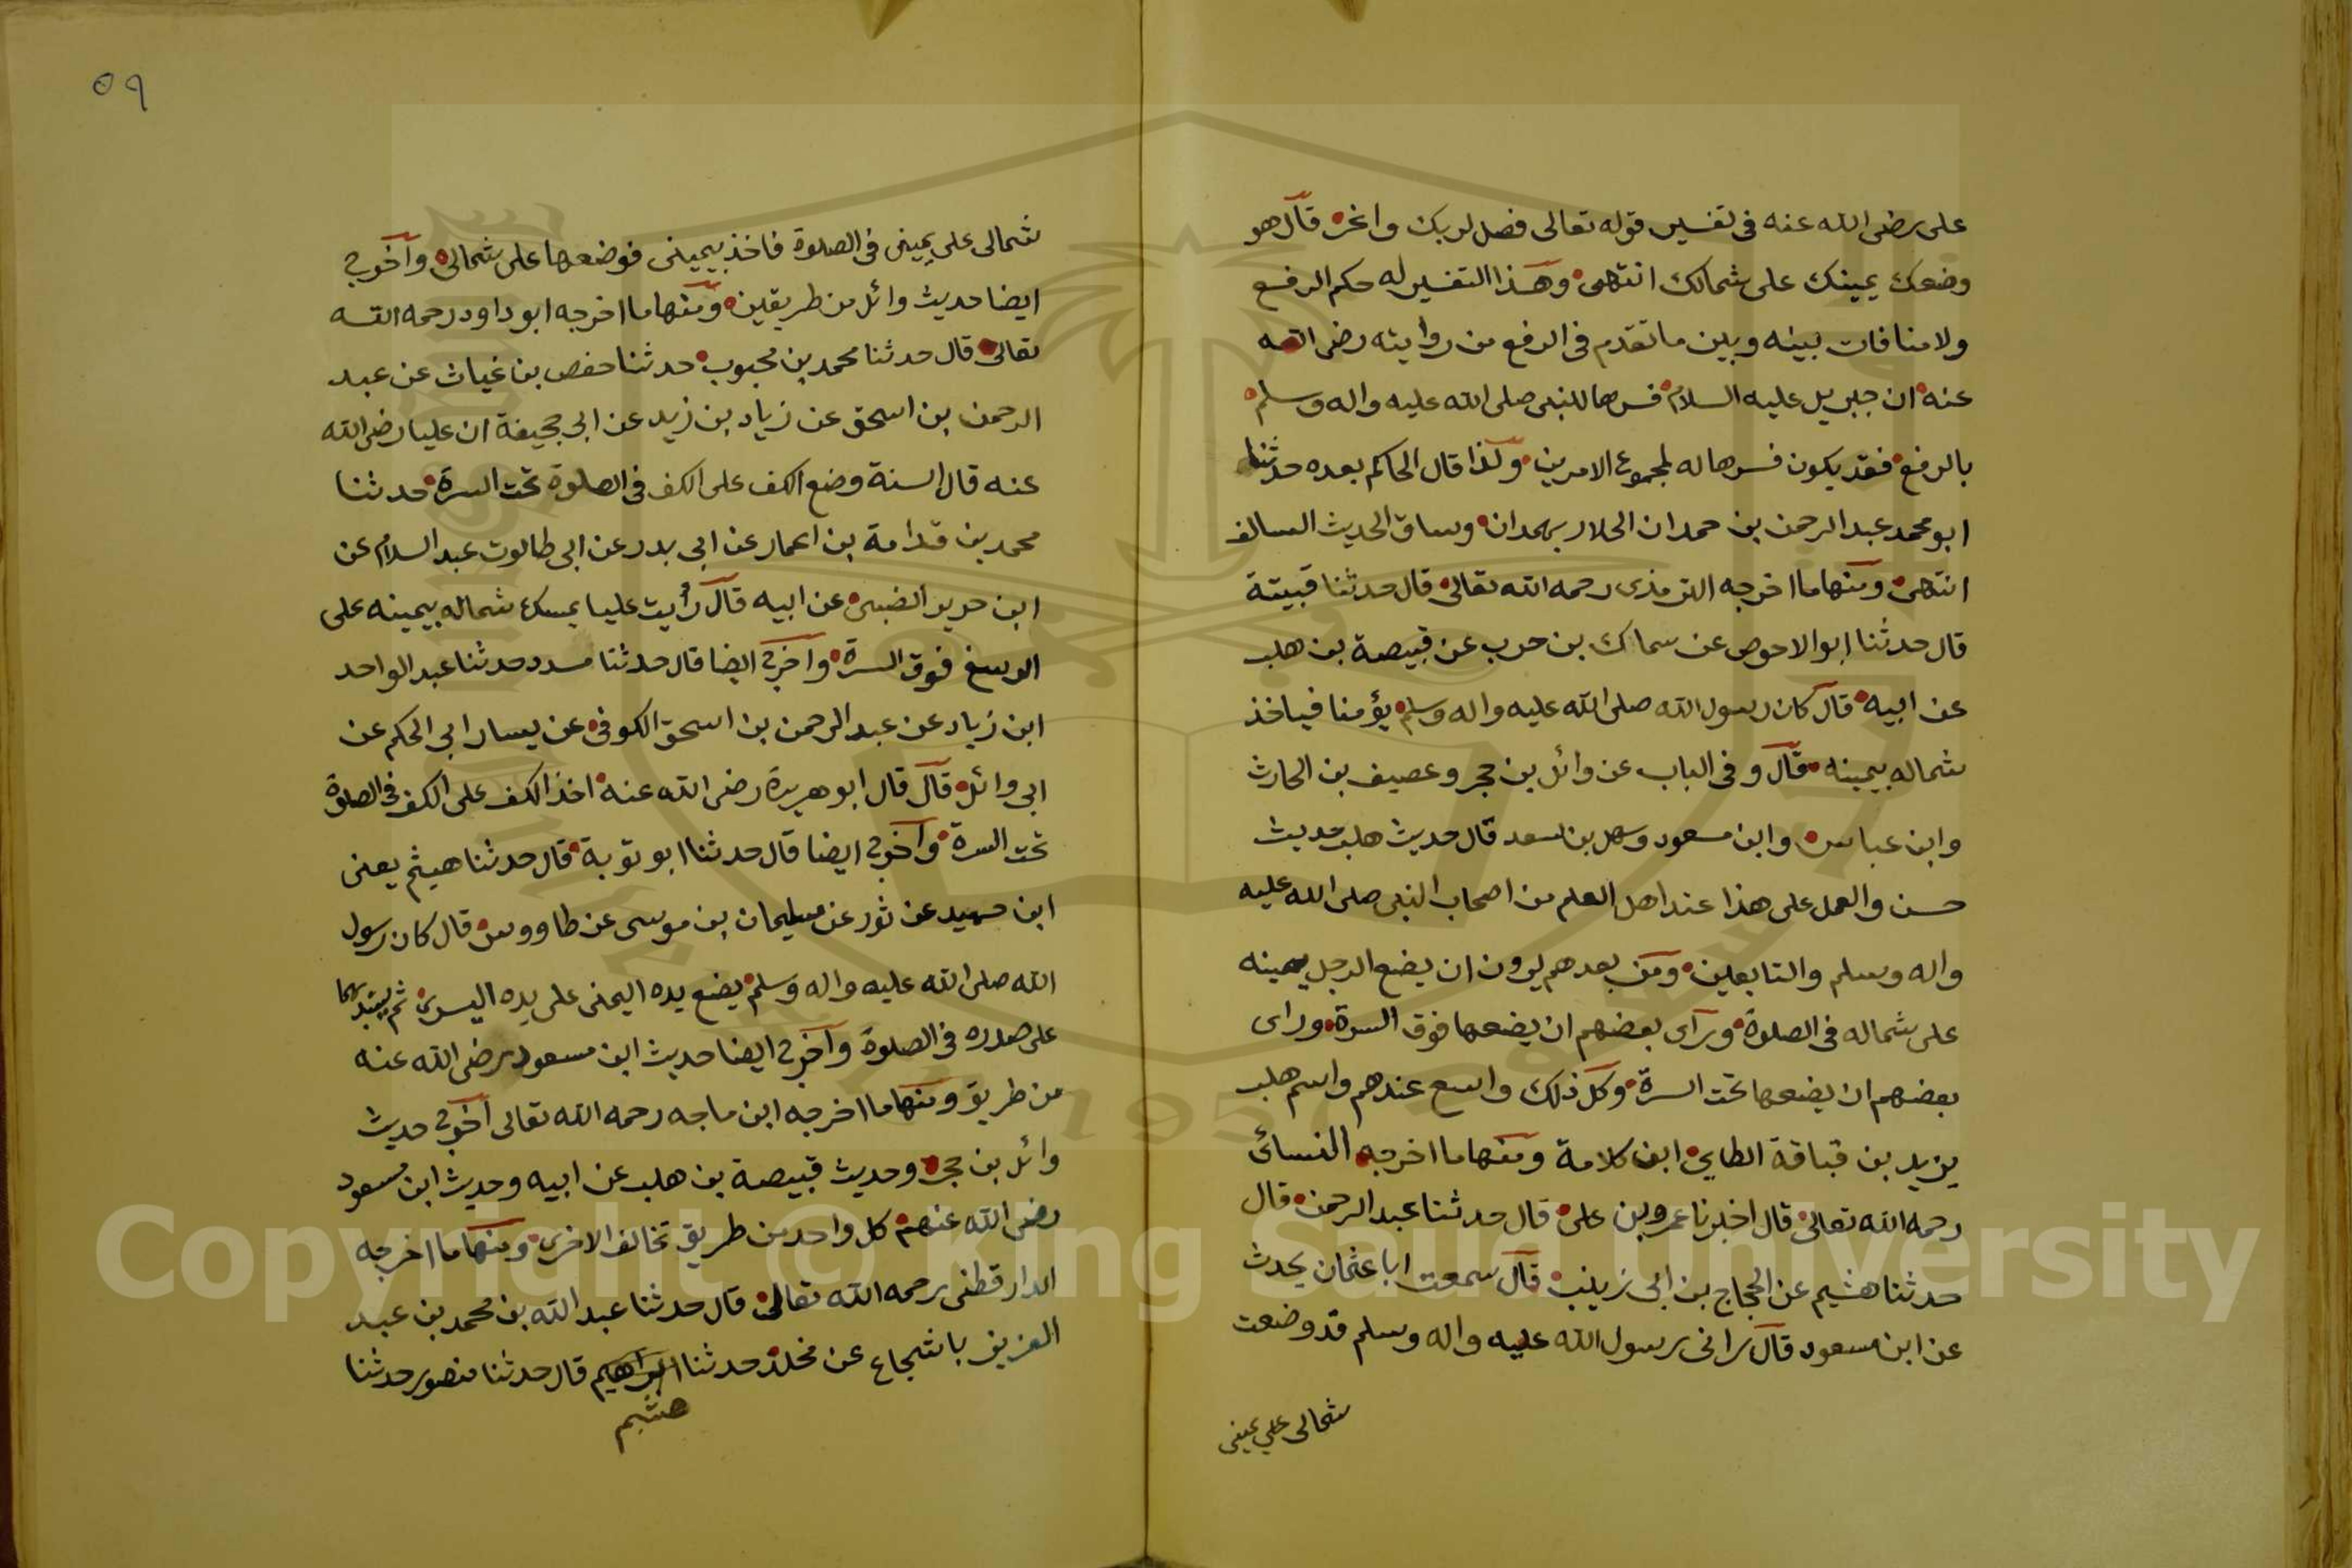 على رضى الله عنه فى تفسير قوله تعالى فصل لربك وانحر قال هو
وضعك يمينك على شمالك انتهى وهذا التفسير له حكم الرفع
ولا منافات بينه وبين ما تقدم فى الرفع من روايته رضى الله
عنه ان جبريل عليه السلام فسرها للنبى صلى الله عليه واله وسلم
بالرفع فقد يكون فسرها له لمجموع الامرين ولذا قال الحاكم بعده حدثنا
ابو محمد عبد الرحمن بن حمدان الجلاب بهمدان وساق الحديث السالف
انتهى ومنها ما اخرجه الترمذى رحمه الله تعالى قال حدثنا قبيتة
قال حدثنا ابو الاحوص عن سماك بن حرب عن قبيصة بن هلب
عن ابيه قال كان رسول الله صلى الله عليه واله وسلم يؤمنا فياخذ
شماله بيمينه قال وفى الباب عن وائل بن حجر وعصيف بن الحارث
وابن عباس وابن مسعود وسهل بن سعد قال حديث هلب حديث
حسن والعمل على هذا عند اهل العلم من اصحاب النبى صلى الله عليه
واله وسلم والتابعين ومن بعدهم يرون ان يضع الرجل يمينه
على شماله فى الصلوة وراى بعضهم ان يضعها فوق السرة وراى
بعضهم ان يضعها تحت السرة وكل ذلك واسع عندهم واسم هلب
يزيد بن قباقة الطاى ابن كلامة ومنها ما اخرجه النسائى
رحمه الله تعالى قال اخبرنا عمرو بن على قال حدثنا عبد الرحمن قال
حدثنا هشيم عن الحجاج بن ابى زينب قال سمعت ابا عثمان يحدث
عن ابن مسعود قال رانى رسول الله عليه واله وسلم قد وضعت
شمالى على يمينى
٥٩
شمالى على يمينى فى الصلوة فاخذ بيمينى فوضعها على شمالى واخرج
ايضا حديث وائل من طريقين ومنها ما اخرجه ابو داود رحمه الله
تعالى قال حدثنا محمد بن محبوب حدثنا حفص بن غياث عن عبد
الرحمن بن اسحق عن زياد بن زيد عن ابى جحيفة ان عليا رضى الله
عنه قال السنة وضع الكف على الكف فى الصلوة تحت السرة حدثنا
محمد بن قدامة بن اعمار عن ابى بدر عن ابى طالوت عبد السلام عن
ابن جرير الضبى عن ابيه قال رأيت عليا يمسك شماله بيمينه على
الرسغ فوق السرة واخرج ايضا قال حدثنا مسدد حدثنا عبد الواحد
ابن زياد عن عبد الرحمن بن اسحق الكوفى عن يسار ابى الحكم عن
ابى وائل قال قال ابو هريرة رضى الله عنه اخذ الكف على الكف فى الصلوة
تحت السرة واخرج ايضا قال حدثنا ابو توبة قال حدثنا هيثم يعنى
ابن حميد عن ثور عن سليمان بن موسى عن طاووس قال كان رسول
الله صلى الله عليه واله وسلم يضع يده اليمنى على يده اليسرى ثم يشد بهما
على صدره فى الصلوة واخرج ايضا حديث ابن مسعود رضى الله عنه
من طريق ومنها ما اخرجه ابن ماجه رحمه الله تعالى اخرج حديث
وائل بن حجر وحديث قبيصة بن هلب عن ابيه وحديث ابن مسعود
رضى الله عنهم كل واحد من طريق تخالف الاخرى ومنها ما اخرجه
الدارقطنى رحمه الله تعالى قال حدثنا عبد الله بن محمد بن عبد
العزيز با شجاع عن مخلد حدثنا ابراهيم قال حدثنا منصور حدثنا
هشيم
Copyright © King Saud University
1957